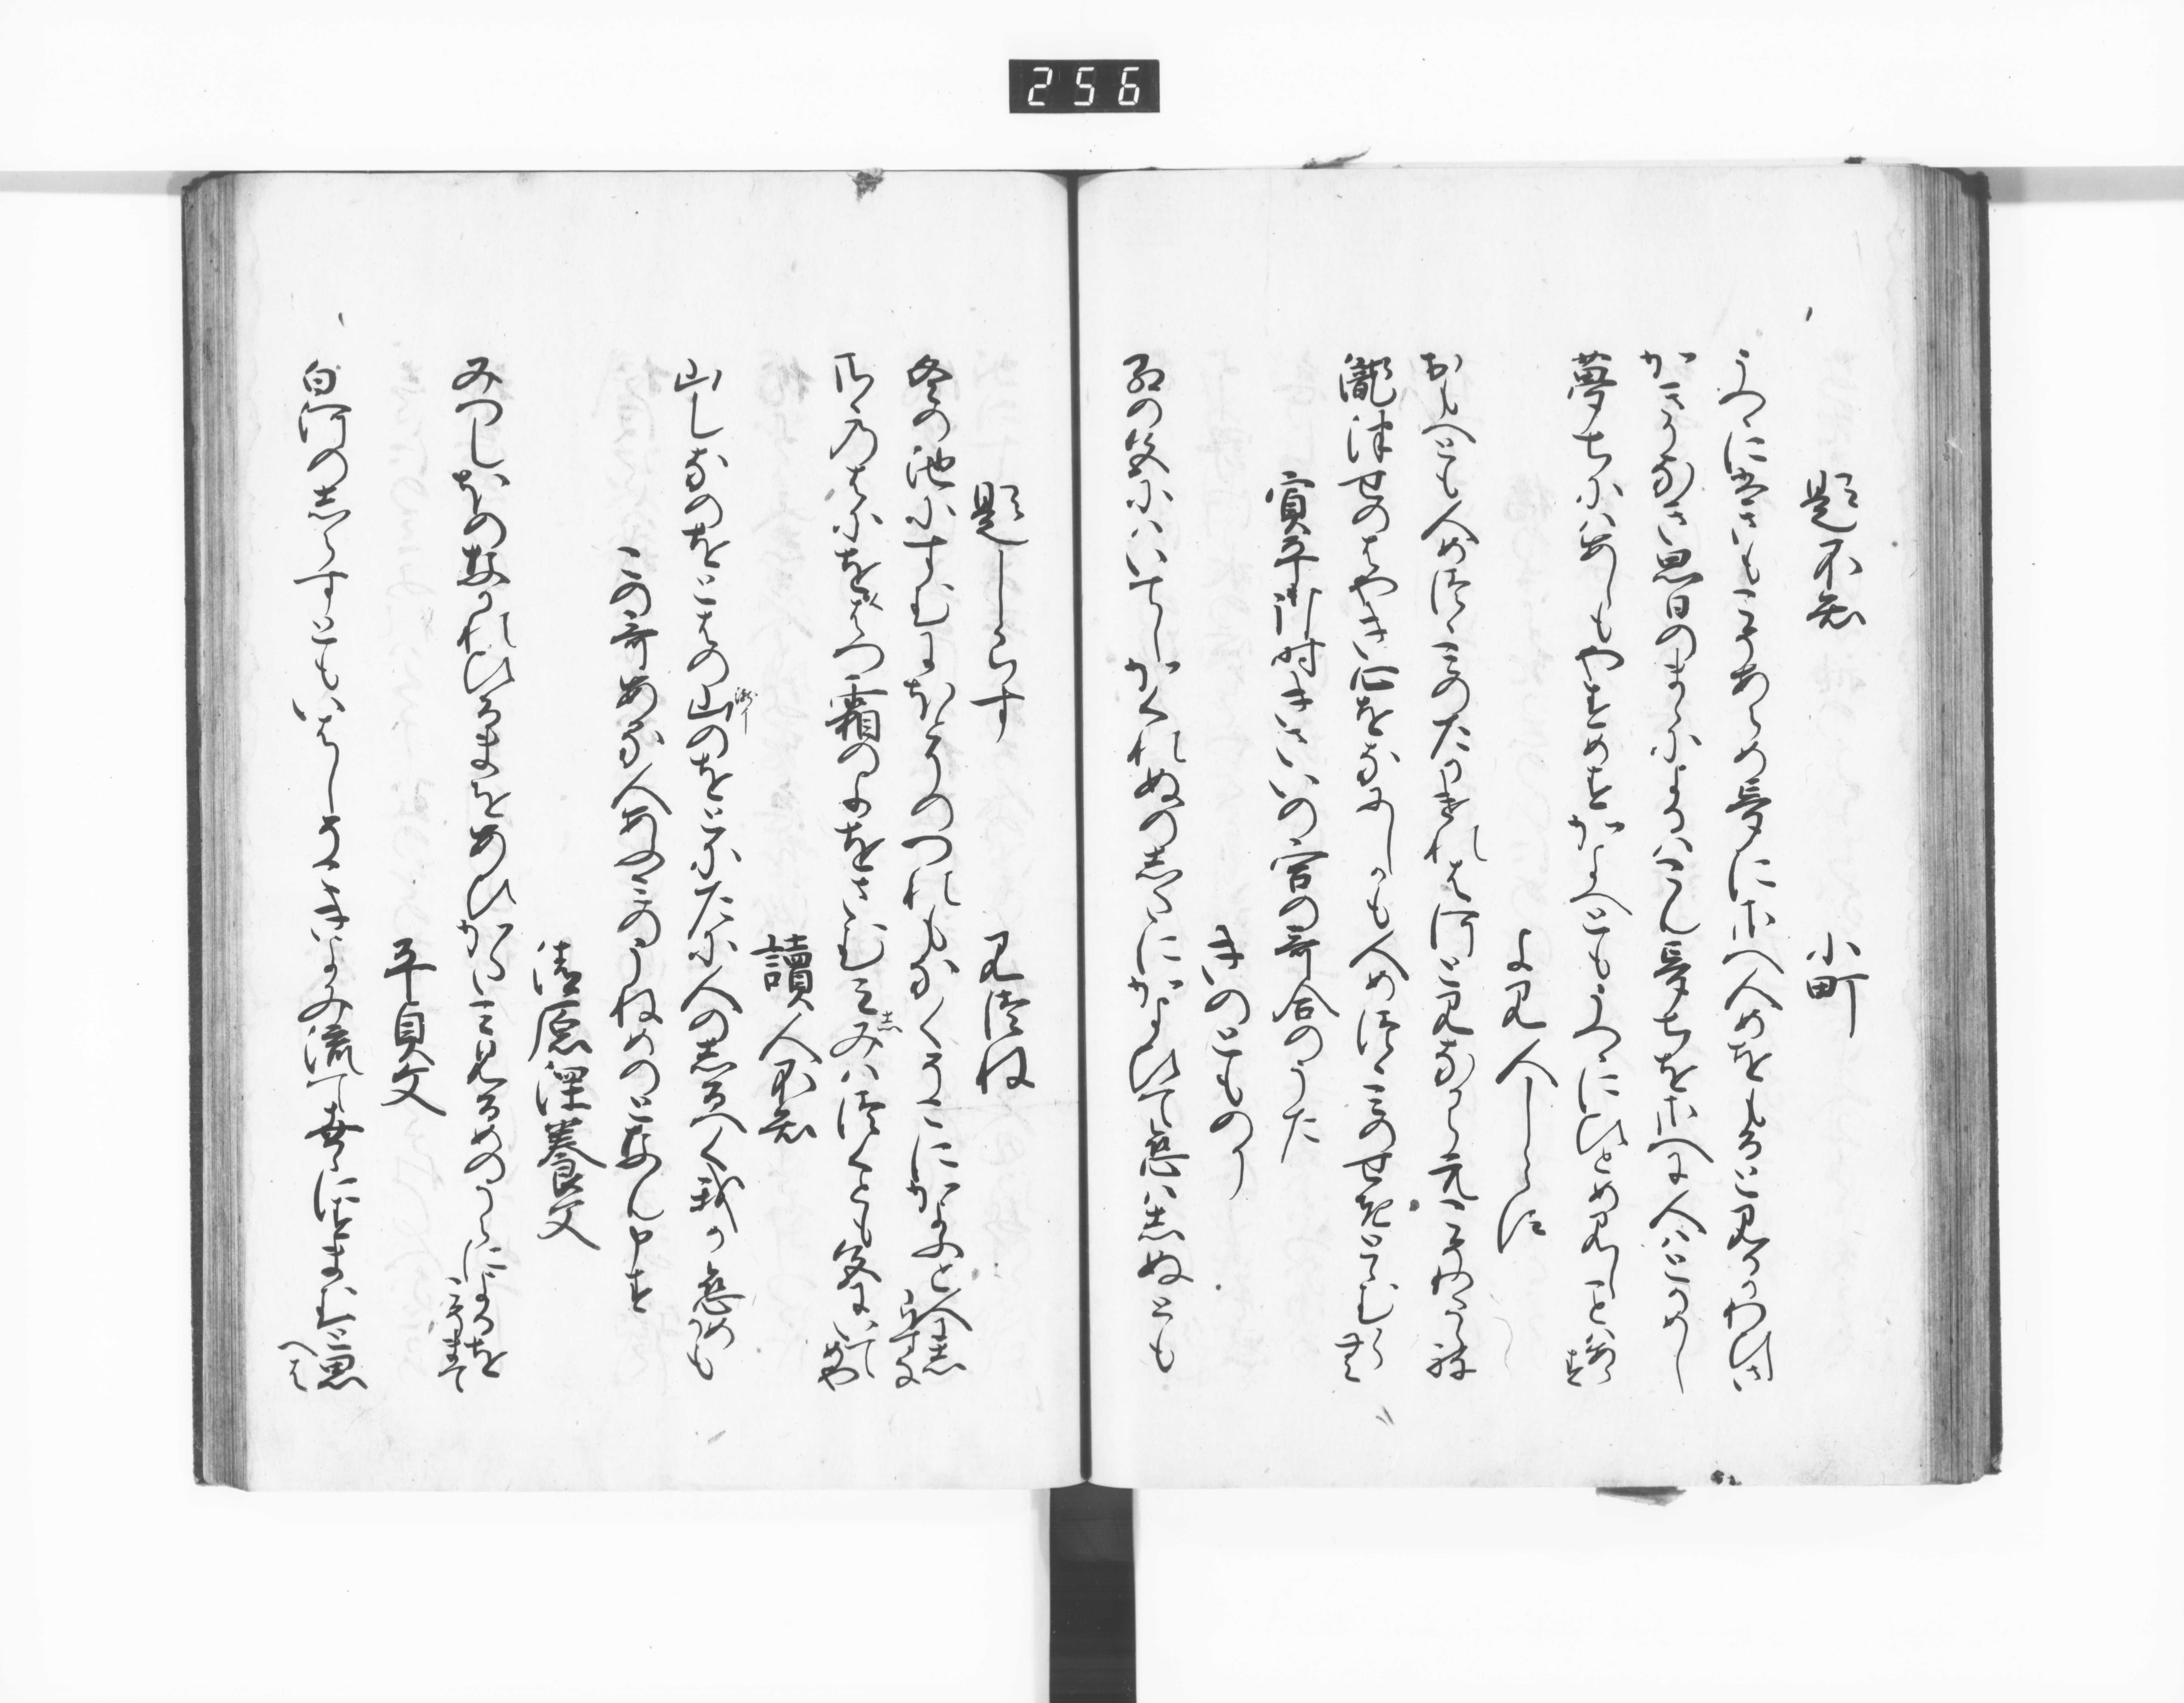 題不知　小町
うつゝにはさもこそあらめ夢にさへ人めをもると見るかわひしさ
かきりなき思日のまゝによるもこん夢ちをさへに人はとかめし
夢ちにはあしもやすめすかよへともうつゝにひとめ見しことはあらす
よみ人しらす
おもへとも人めつゝみのたかけれは河と見なからえこそわたらね
瀧津せのはやき心をなにしかも人めつゝみのせきとゝむらむ
寛平御時きさいの宮の哥合のうた
きのとものり
紅の色にはいてしかくれぬのしたにかよひて恋はしぬとも
題しらす　みつね
冬の池にすむにほとりのつれもなくそこにかよふと人にしらすな
さゝの葉にをくはつ霜の夜をさむみしみはつくとも色にいてめや
讀人不知
山しなのをとはの山のをとにたに人のしるへく我か恋めかも
この哥ある人あふみのうねめのとなん申す
清原深養父
みつしほの流れひるまをあひかたみ見るめのうらによるをこそまて
平貞文
白河のしらすともいはしそこきよみ流て世々にすまむと思へは